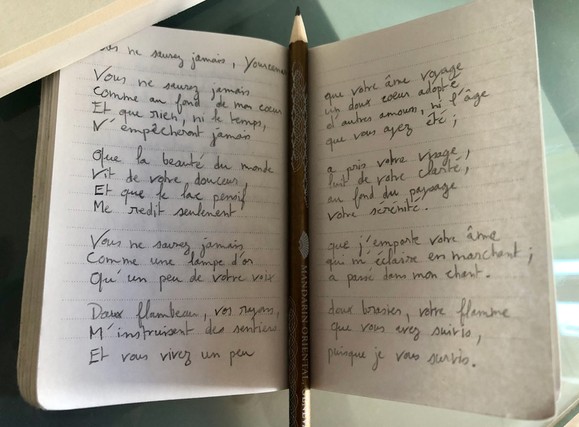 ne saurez jamais, Yourcenar
Vous ne saurez jamais que votre âme voyage
Comme au fond de mon coeur un doux coeur adopté,
Et que rien, ni le temps, d'autres amours, ni l'âge
N'empêcheront jamais que vous ayez été ;
Que la beauté du monde a pris votre visage,
Vit de votre douceur, luit de votre clarté,
Et que le lac pensif au fond du paysage
Me redit seulement votre sérénité.
Vous ne saurez jamais que j'emporte votre âme
Comme une lampe d'or qui m'éclaire en marchant ;
Qu'un peu de votre voix a passé dans mon chant.
Doux flambeau, vos rayons, doux brasier, votre flamme
M'instruisent des sentiers que vous avez suivis,
Et vous vivez un peu puisque je vous survis.
MANDARIN ORIENTAL